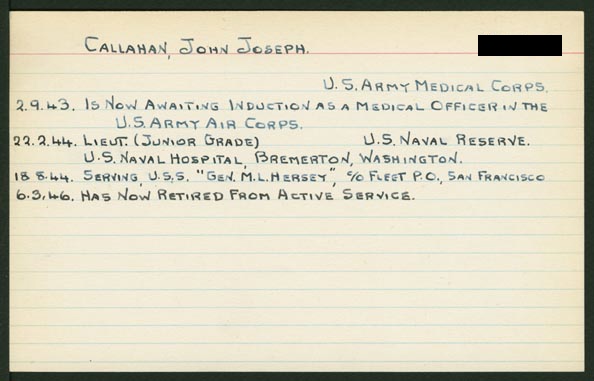 CALLAHAN, JOHN JOSEPH.
U.S. ARMY MEDICAL CORPS.
2.9.43. IS NOW AWAITING INDUCTION AS A MEDICAL OFFICER IN THE
U.S. ARMY AIR CORPS.
22.2.44. LIEUT. (JUNIOR GRADE) U.S. NAVAL RESERVE.
U.S. NAVAL HOSPITAL, BREMERTON, WASHINGTON.
18 8.44. SERVING, U.S.S. "GEN. M.L. HERSEY", C/O FLEET P.O., SAN FRANCISCO
6.3.46. HAS NOW RETIRED FROM ACTIVE SERVICE.